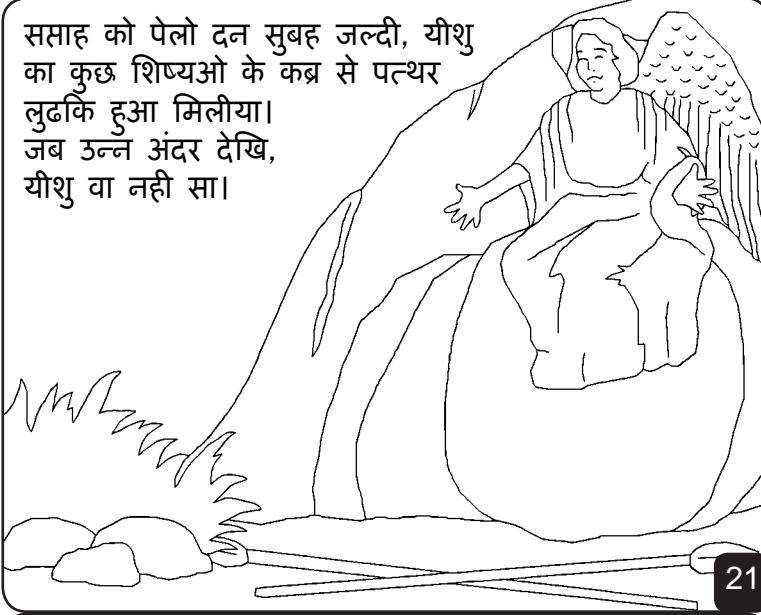 सप्ताह को पेलो दन सुबह जल्दी, यीशु
का कुछ शिष्यओ के कब्र से पत्थर
लुढकि हुआ मिलीया।
जब उन्न अंदर देखि,
यीशु वा नही सा।
21